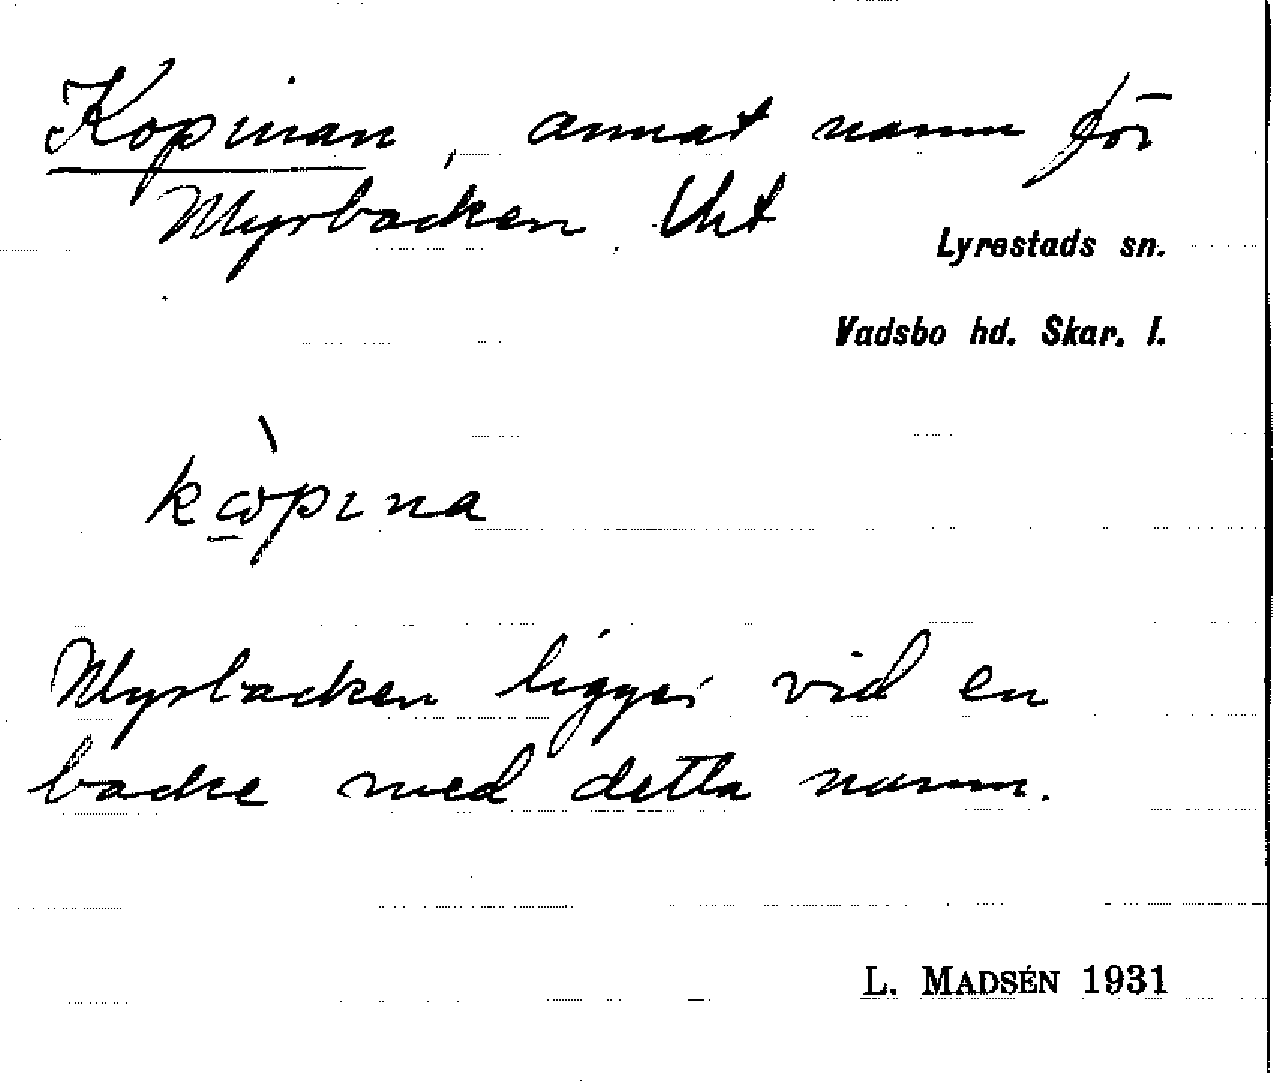 Kopinan, annat namn för
Myrbacken Uht
Lyrestads sn.
Vadsbo hd. Skar. l.
kὼpɩna
Myrbacken ligger vid en
backe med detta namn.
L. MADSÉN 1931